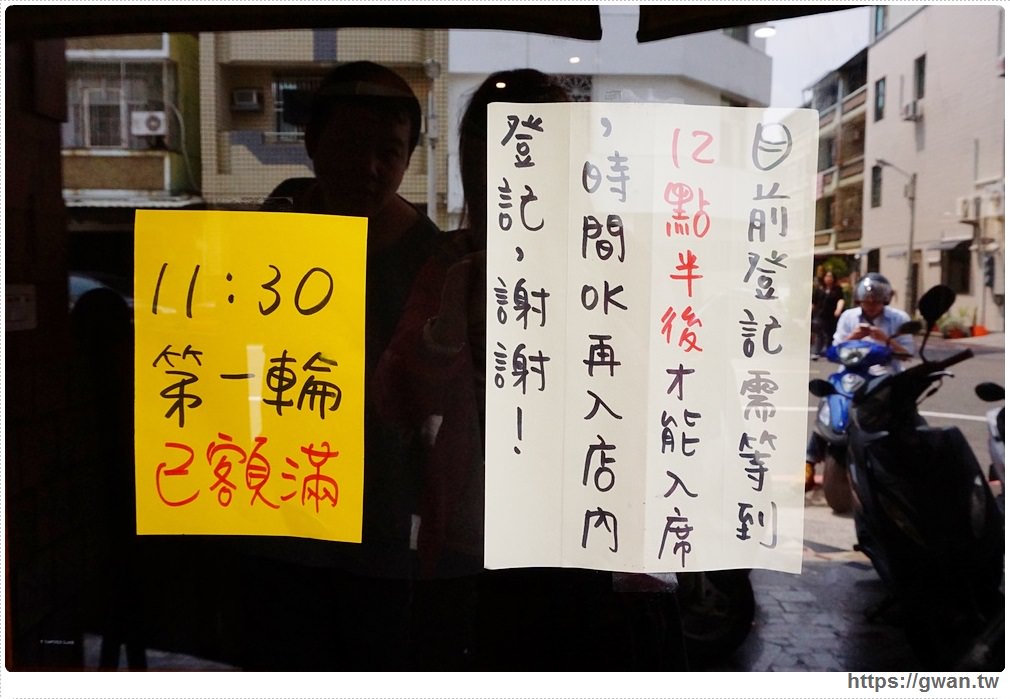 11:30
第一輪
已額滿
目前登記需等到
12點半後才能入席
，時間OK再入店內
登記，謝謝！
https://gwan.tw